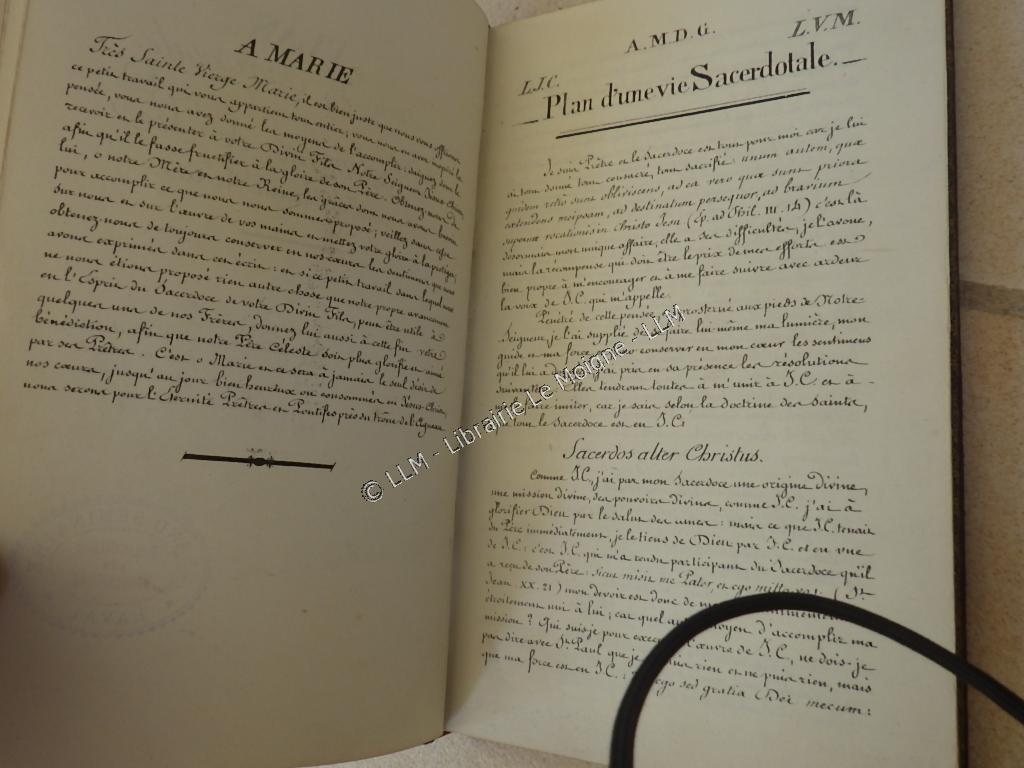 A MARIE
Très Sainte Vierge Marie, il est bien juste que nous vous offrions
ce petit travail qui vous appartient tout entier; vous nous en avez inspiré la
pensée, vous nous avez donné les moyens de l'accomplir; daignez donc le
recevoir et le présenter à votre Divin Fils, Notre Seigneur Jésus-Christ,
afin qu'il le fasse fructifier à la gloire de son Père. Obtenez-nous de
lui, o notre Mère et notre Reine, les grâces dont nous avons besoin
pour accomplir ce que nous nous sommes proposé; veillez sans cesse
sur nous et sur l'œuvre de vos mains et mettez votre gloire à la protéger,
obtenez-nous de toujours conserver en nos cœurs les sentiments que nous
avons exprimés dans cet écrit: et si ce petit travail dans lequel nous
ne nous étions proposé rien autre chose que notre propre avancement
en l'Esprit du Sacerdoce de votre Divin Fils, peut être utile à
quelques uns de nos Frères, donnez lui aussi à cette fin votre
bénédiction, afin que notre Père Céleste soit plus glorifié et aimé
par ses Prêtres. C'est o Marie et ce sera à jamais le seul désir de
nos cœurs, jusqu'au jour bien heureux où consommés en Jésus-Christ,
nous serons pour l'Éternité Prêtres et Pontifes près du trône de l'Agneau
A.M.D.G.
L.J.C.
L.V.M.
Plan d'une vie Sacerdotale.
Je suis Prêtre et le Sacerdoce est tout pour moi car je lui
ai tout donné tout consacré, tout sacrifié: unum autem, quæ
quidem retrò sunt obliviscens, ad ea vero quæ sunt priora
extendens meipsum, ad destinatum persequor, ad bravium
supernæ vocationis in Christo Jesu (Ep. ad Phil. III. 14) c'est là
désormais mon unique affaire, elle a ses difficultés, je l'avoue,
mais la récompense qui doit être le prix de mes efforts est
bien propre à m'encourager et à me faire suivre avec ardeur
la voix de J.C. qui m'appelle.
Pénétré de cette pensée et prosterné aux pieds de Notre-
Seigneur, je l'ai supplié de se faire lui-même ma lumière, mon
guide et ma force et de conserver en mon cœur les sentiments
qu'il lui a donnés; j'ai pris en sa présence les résolutions
suivantes. Elles tendront toutes à m'unir à J.C. et à
faire imiter, car je sais selon la doctrine des Saints,
tout le Sacerdoce est en J.C:
Sacerdos alter Christus.
Comme J.C, j'ai par mon Sacerdoce une origine divine,
une mission divine, des pouvoirs divins, comme J.C. j'ai à
glorifier Dieu par le salut des âmes: mais ce que J.C. tenait
du Père immédiatement, je le tiens de Dieu par J.C. et en vue
de J.C: c'est J.C. qui m'a rendu participant du Sacerdoce qu'il
a reçu de son Père: sicut misit me Pater, et ego mitto vos: (St
Jean XX. 21) mon devoir est donc de
étroitement uni à lui; car quel autre moyen d'accomplir ma
mission? Qui suis-je pour exercer l'œuvre de J.C, ne dois-je
pas dire avec St Paul que je ne suis rien et ne puis rien, mais
que ma force est en J.C: non ego sed gratia Dei mecum:
© LLM - Librairie Le Moigne - LLM